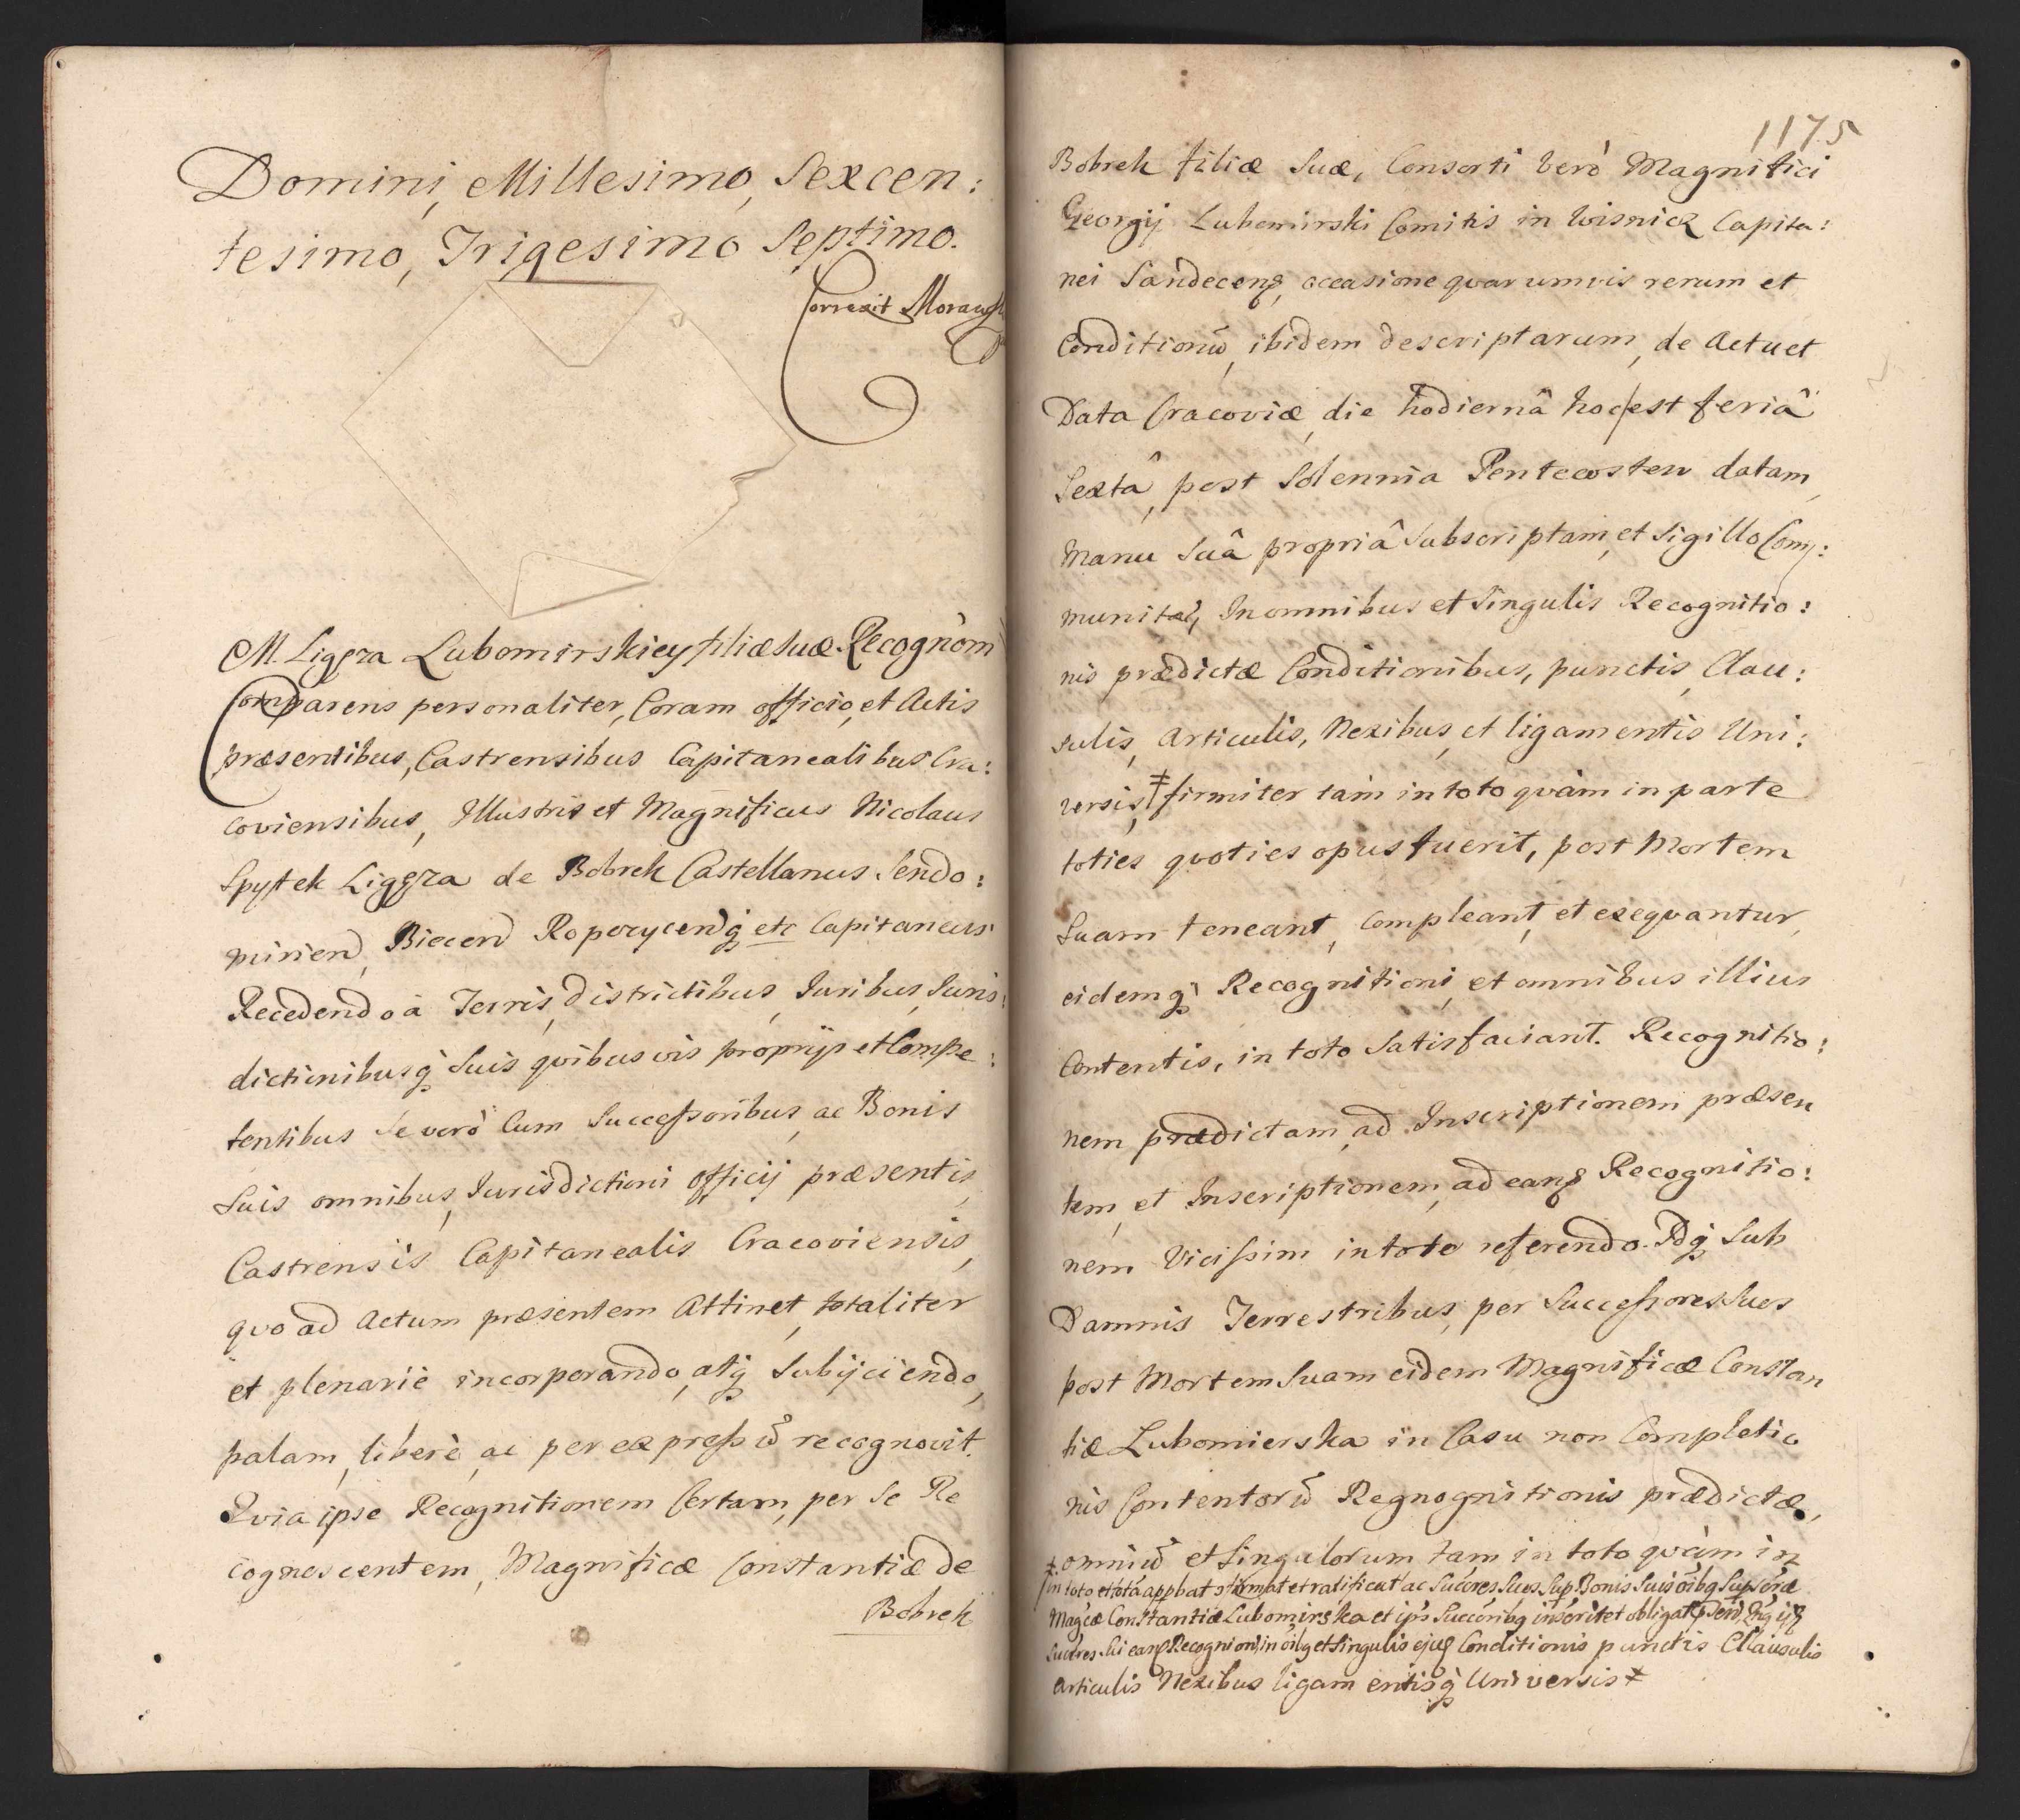 Domini, Millesimo, Sexcen:
tesimo, Trigesimo Septimo.
Correxit
M. Ligęza Lubomirskiey filiæ suæ Recognõm
Comparens personaliter, Coram officio, et Actis
præsentibus, Castrensibus Capitanealibus Cra:
coviensibus, Illustris et Magnificus Nicolaus
Spytek Ligęza de Bobrek Castellanus Sendo:
mirien, Biecen Ropczycenq etc Capitaneus
Recedendo à Terris, districtibus, Juribus, Juris:
dictionibusq suis quibusvis proprijs et Compe:
tentibus Se verò Cum Successoribus, ac Bonis
Suis omnibus, Jurisdictioni officij præsentis,
Castrensis Capitanealis Cracoviensis,
quo ad Actum præsentem Attinet, totaliter
et plenariè incorporando, atq Subijciendo,
palam, liberè, ac per expressũ recognovit.
Quia ipse Recognitionem Certam, per Se Re
cognoscentem, Magnificæ Constantiæ de
Bobrek
1175
Bobrek filiæ Suæ, Consorti verò Magnifici
Georgij Lubomirski Comitis in Wisnicz Capita:
nei Sandecens, occasione quarumvis rerum et
Conditionũ, ibidem descriptarum, de Actu et
Data Cracoviæ, die hodiernâ hoc est feriâ
Sextâ, post Solennia Pentecosten datam,
Manu Suâ propriâ Subscriptam, et Sigillo Com:
munitã, In omnibus et Singulis Recognitio:
nis prædictæ Conditionibus, punctis, Clau:
sulis, Articulis, Nexibus, et ligamentis Uni:
versis, ǂ firmiter tàm in toto quàm in parte
toties quoties opus fuerit, post Mortem
Suam teneant, Compleant, et exequantur,
eidemq Recognitioni, et omnibus illius
Contentis, in toto Satisfaciant. Recognitio:
nem prædictam, ad Inscriptionem præsen
tem, et Inscriptionem, ad eand Recognitio:
nem Vicissim in toto referendo. Idq Sub
Damnis Terrestribus, per Successores Suos
post Mortem Suam eidem Magnificæ Constan
tiæ Lubomierska in Casu non Completio
nis Contentorũ Regnognitionis prædictæ,
omniũ et Singulorum tam in toto quàm in
ǂ in toto et totâ appbat et ratificat ac Succres Suos Sup Bonis Suis oibq
Magcæ Constantiæ Lubomirska et ips Succoribq inscribit et obligat
Succres Sui eand Recognioni, in oibq et Singulis ejus Conditionis punctis Clausulis
Articulis Nexibus ligamentisq Universis ǂ